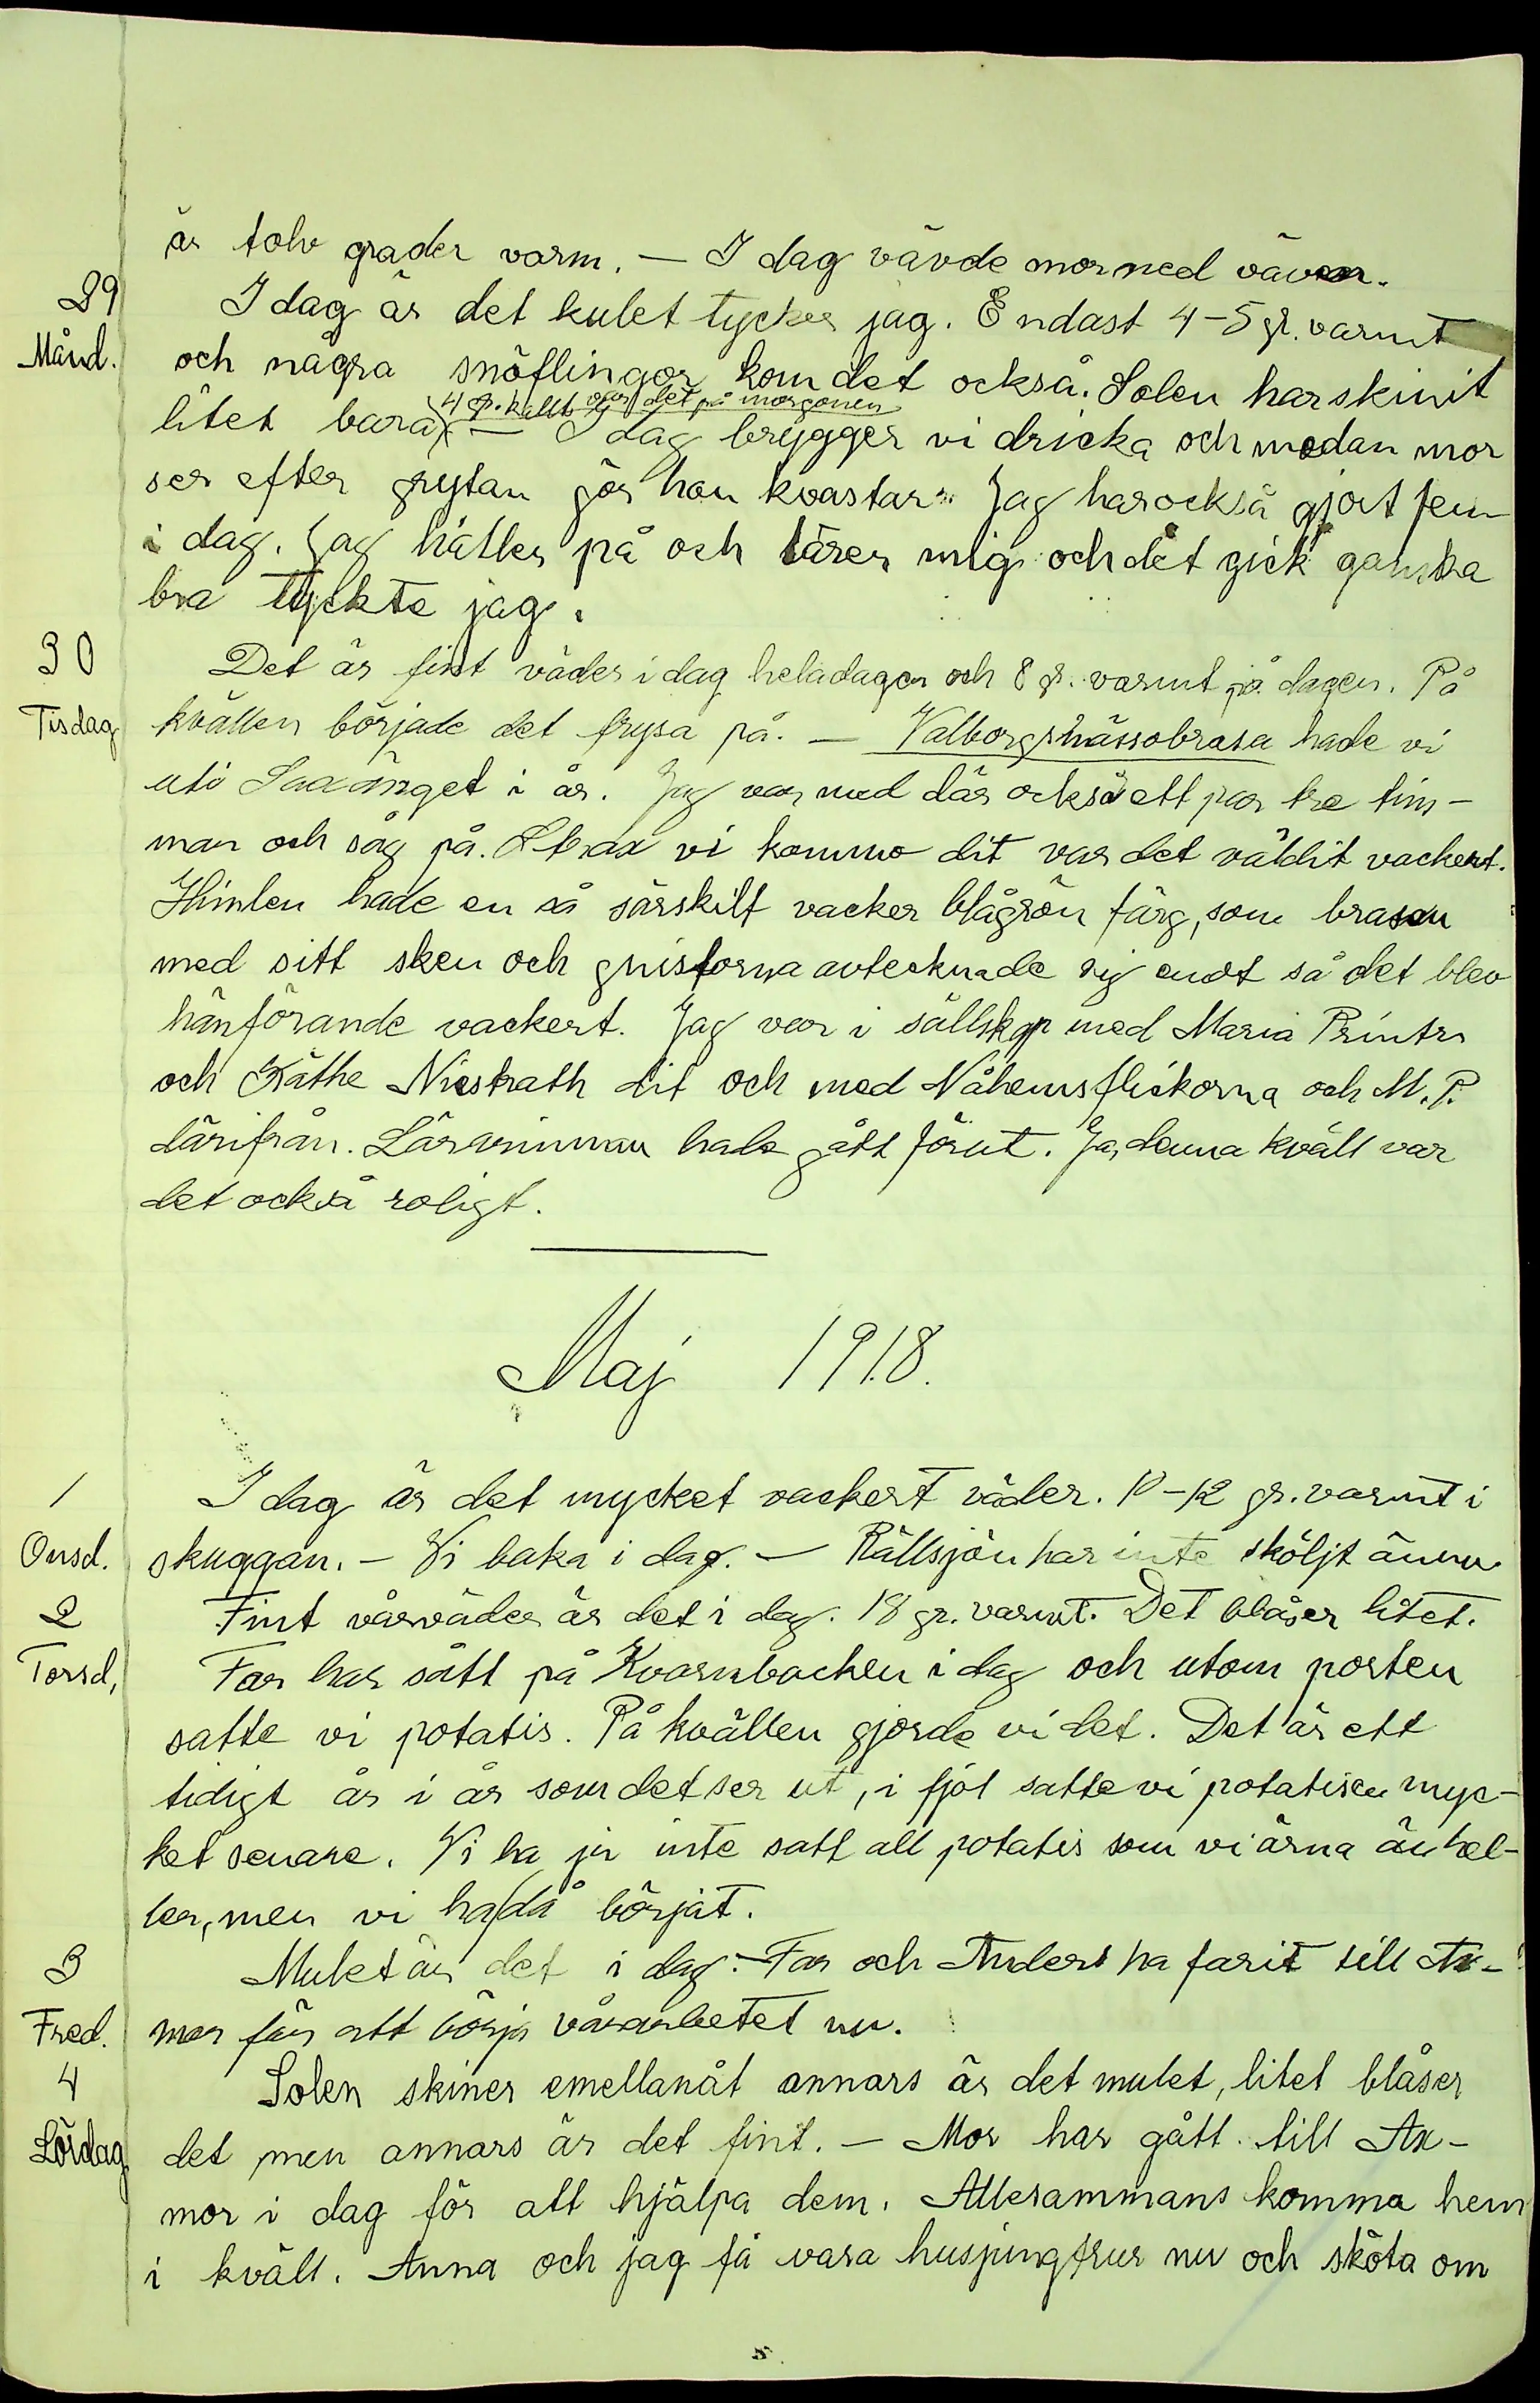 är tolv grader varm. — I dag vävde mor ned väven.
29 I dag är det kulet tycker jag. Endast 4-5 gr. varmt
Månd. och några snöflingor kom det också. Solen har skinit
4 gr. kallt var det på morgonen
litet bara. — I dag brygger vi dricka och medan mor
ser efter grytan gör hon kvastar. Jag har också gjort fem
i dag. Jag håller på och lärer mig och det gick ganska
bra tyckte jag.
30 Det är fint väder i dag hela dagen och 8 gr. varmt på dagen. På
Tisdag kvällen började det frysa på. — Valborgsmässobrasa hade vi
uti Saxänget i år. Jag var med där också ett par tre tim-
mar och såg på. Strax vi kommo dit var det väldit vackert.
Himlen hade en så särskilt vacker blågrön färg, som brasan
med sitt sken och gnistorna avtecknade sig emot så det blev
hänförande vackert. Jag var i sällskap med Maria Printz
och Käthe Nieskath dit och med Nåhemsflickorna och M. P.
därifrån. Lärarinnan hade gått förut. Ja, denna kväll var
det också roligt.
Maj 1918.
1 I dag är det mycket vackert väder. 10-12 gr. varmt i
Onsd. skuggan. — Vi baka i dag. — Rällsjön har inte sköljt ännu.
2 Fint vårväder är det i dag. 18 gr. varmt. Det blåser litet.
Torsd, Far har sått på Kvarnbacken i dag och utom porten
satte vi potatis. På kvällen gjorde vi det. Det är ett
tidigt år i år som det ser ut, i fjol satte vi potatisen myc-
ket senare. Vi ha ju inte satt all potatis som vi ärna än hel-
ler, men vi ha då börjat.
3 Mulet är det i dag. - Far och Anders ha farit till Ax-
Fred. mor för att börja vårarbetet nu.
4 Solen skiner emellanåt annars är det mulet, litet blåser
Lördag det men annars är det fint. — Mor har gått till Ax-
mor i dag för att hjälpa dem. Allesammans komma hem
i kväll. Anna och jag få vara husjungfrur nu och sköta om